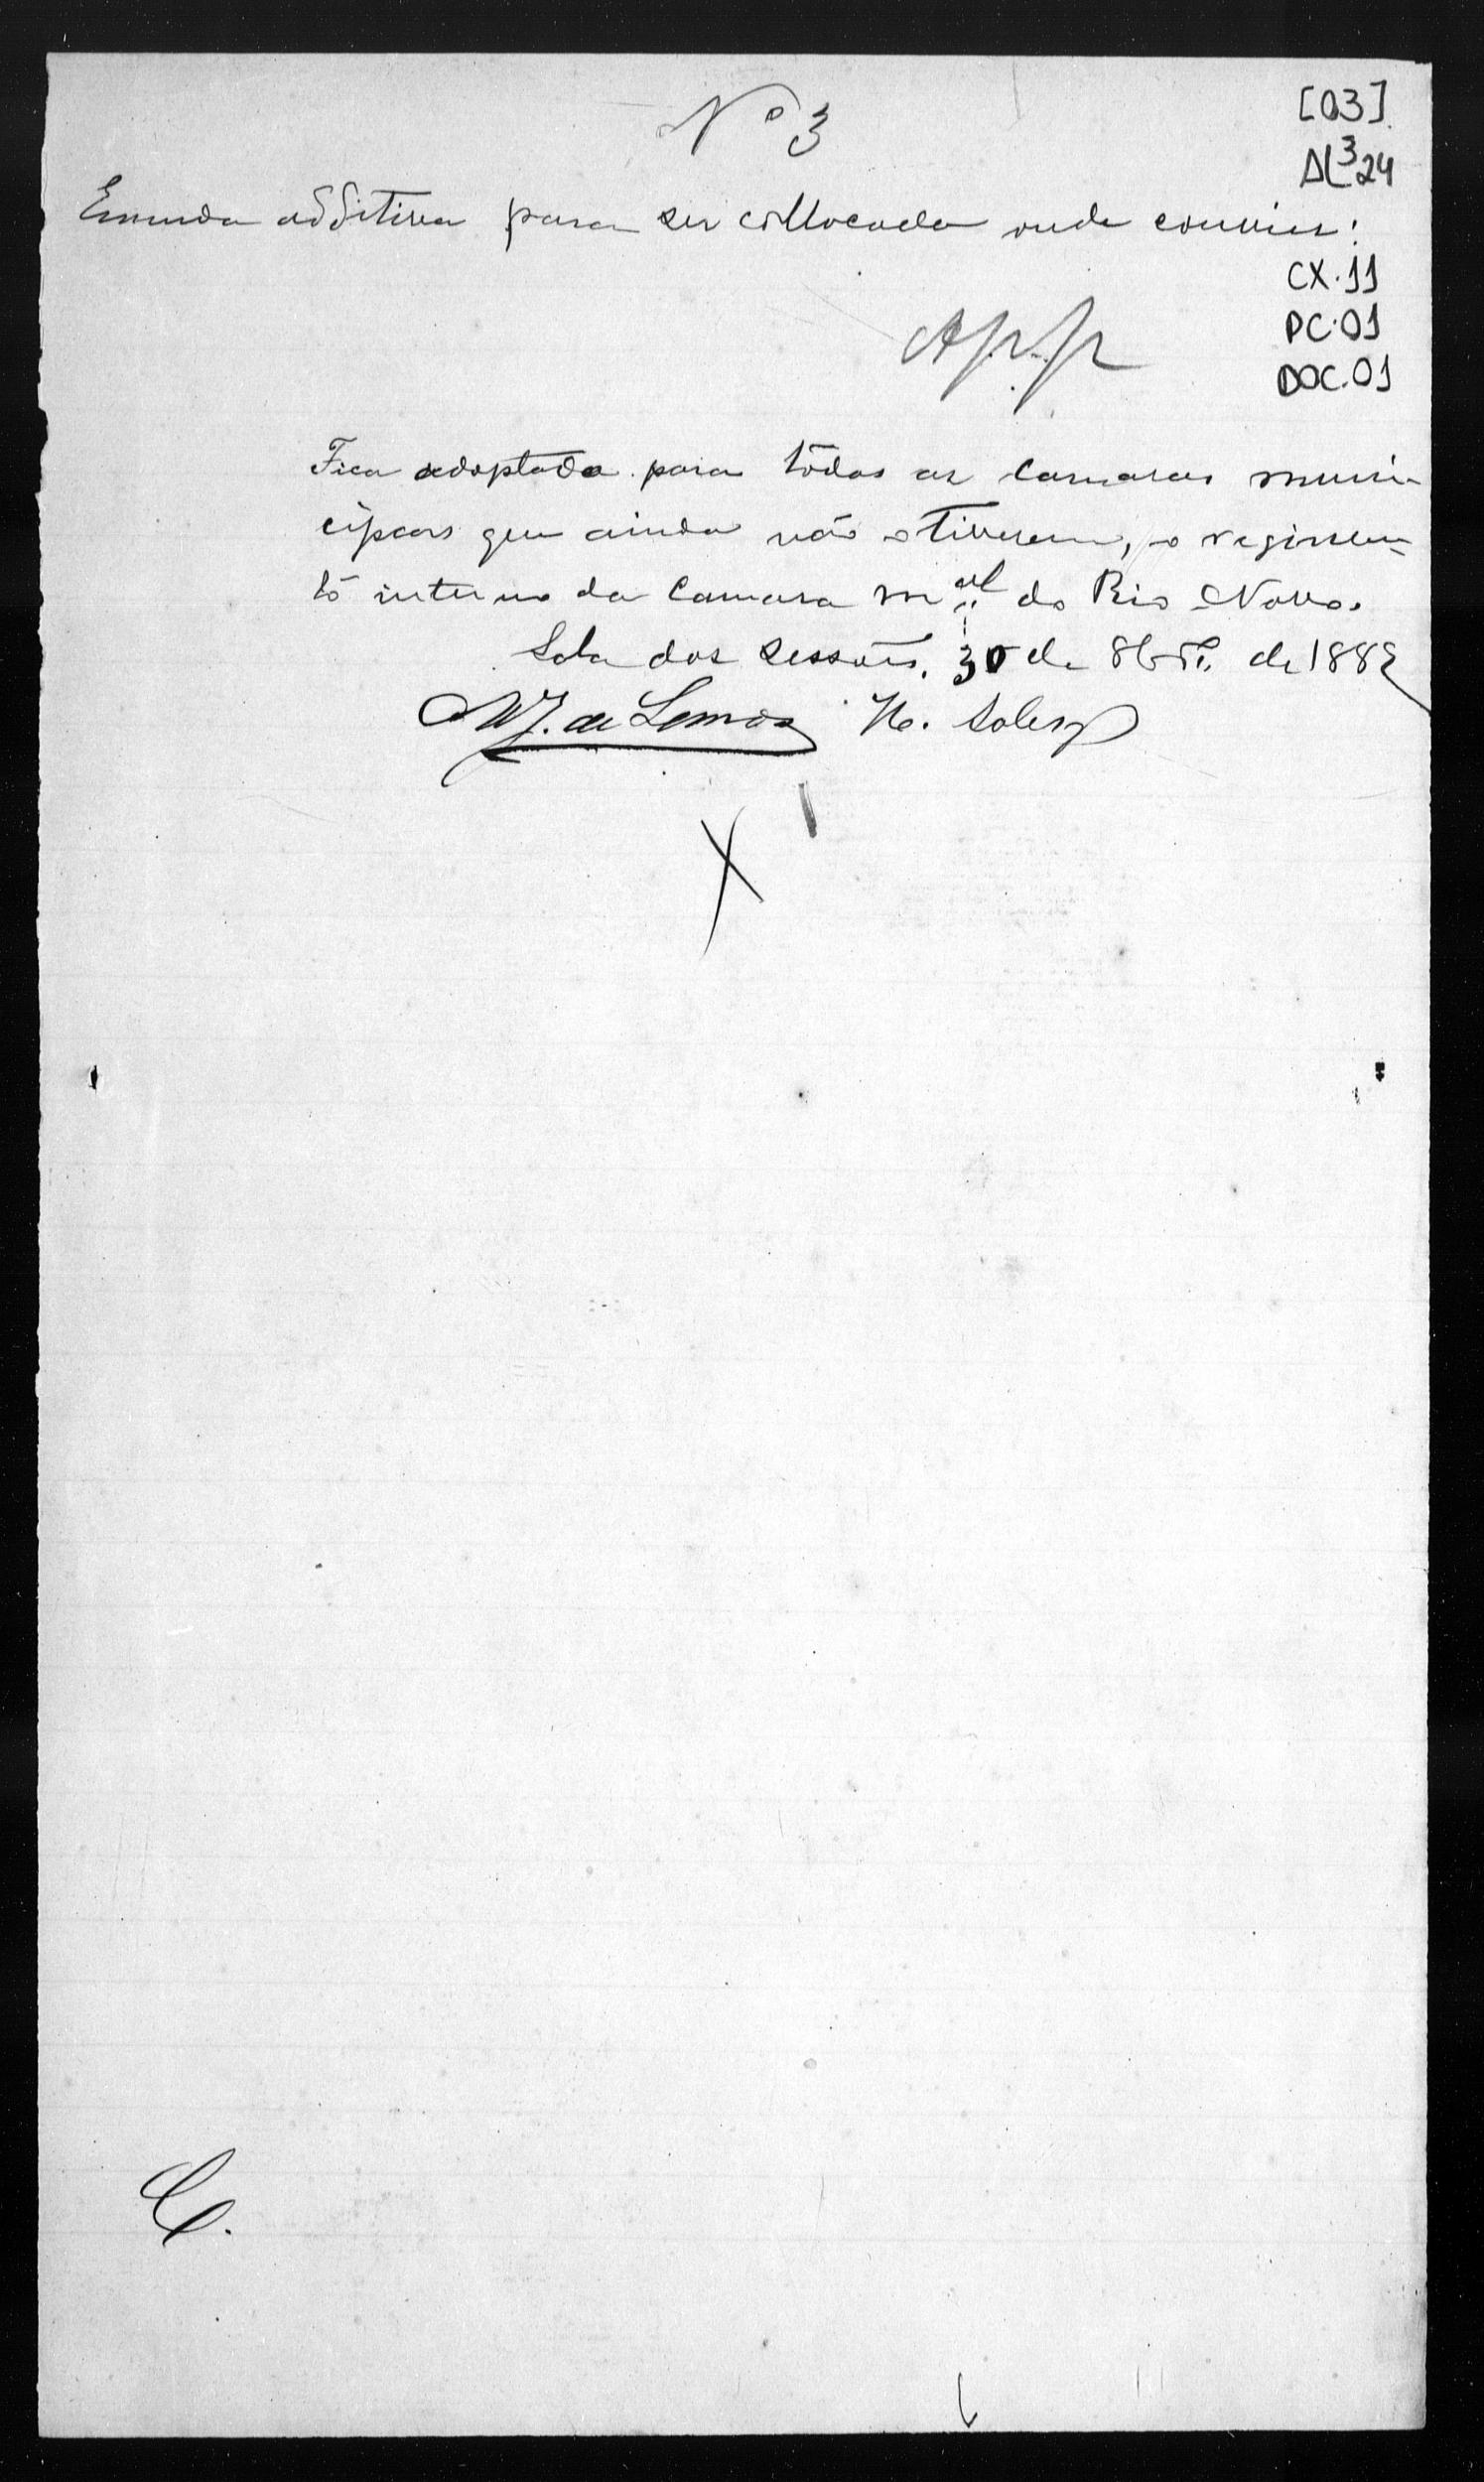 Nº 3
[03]
AL³24
Emenda additiva para ser collocada onde convier:
CX.11
PC.01
DOC.01
App
Fica adoptado para tódas as camaras muni-
cipaes que ainda não o tiverem, o regimen-
to interno da Camara m.al do Rio Novo.
Sala dos sessões, 30 de 8br.º de 188
M J. de Lemos H. Salles
X
C.